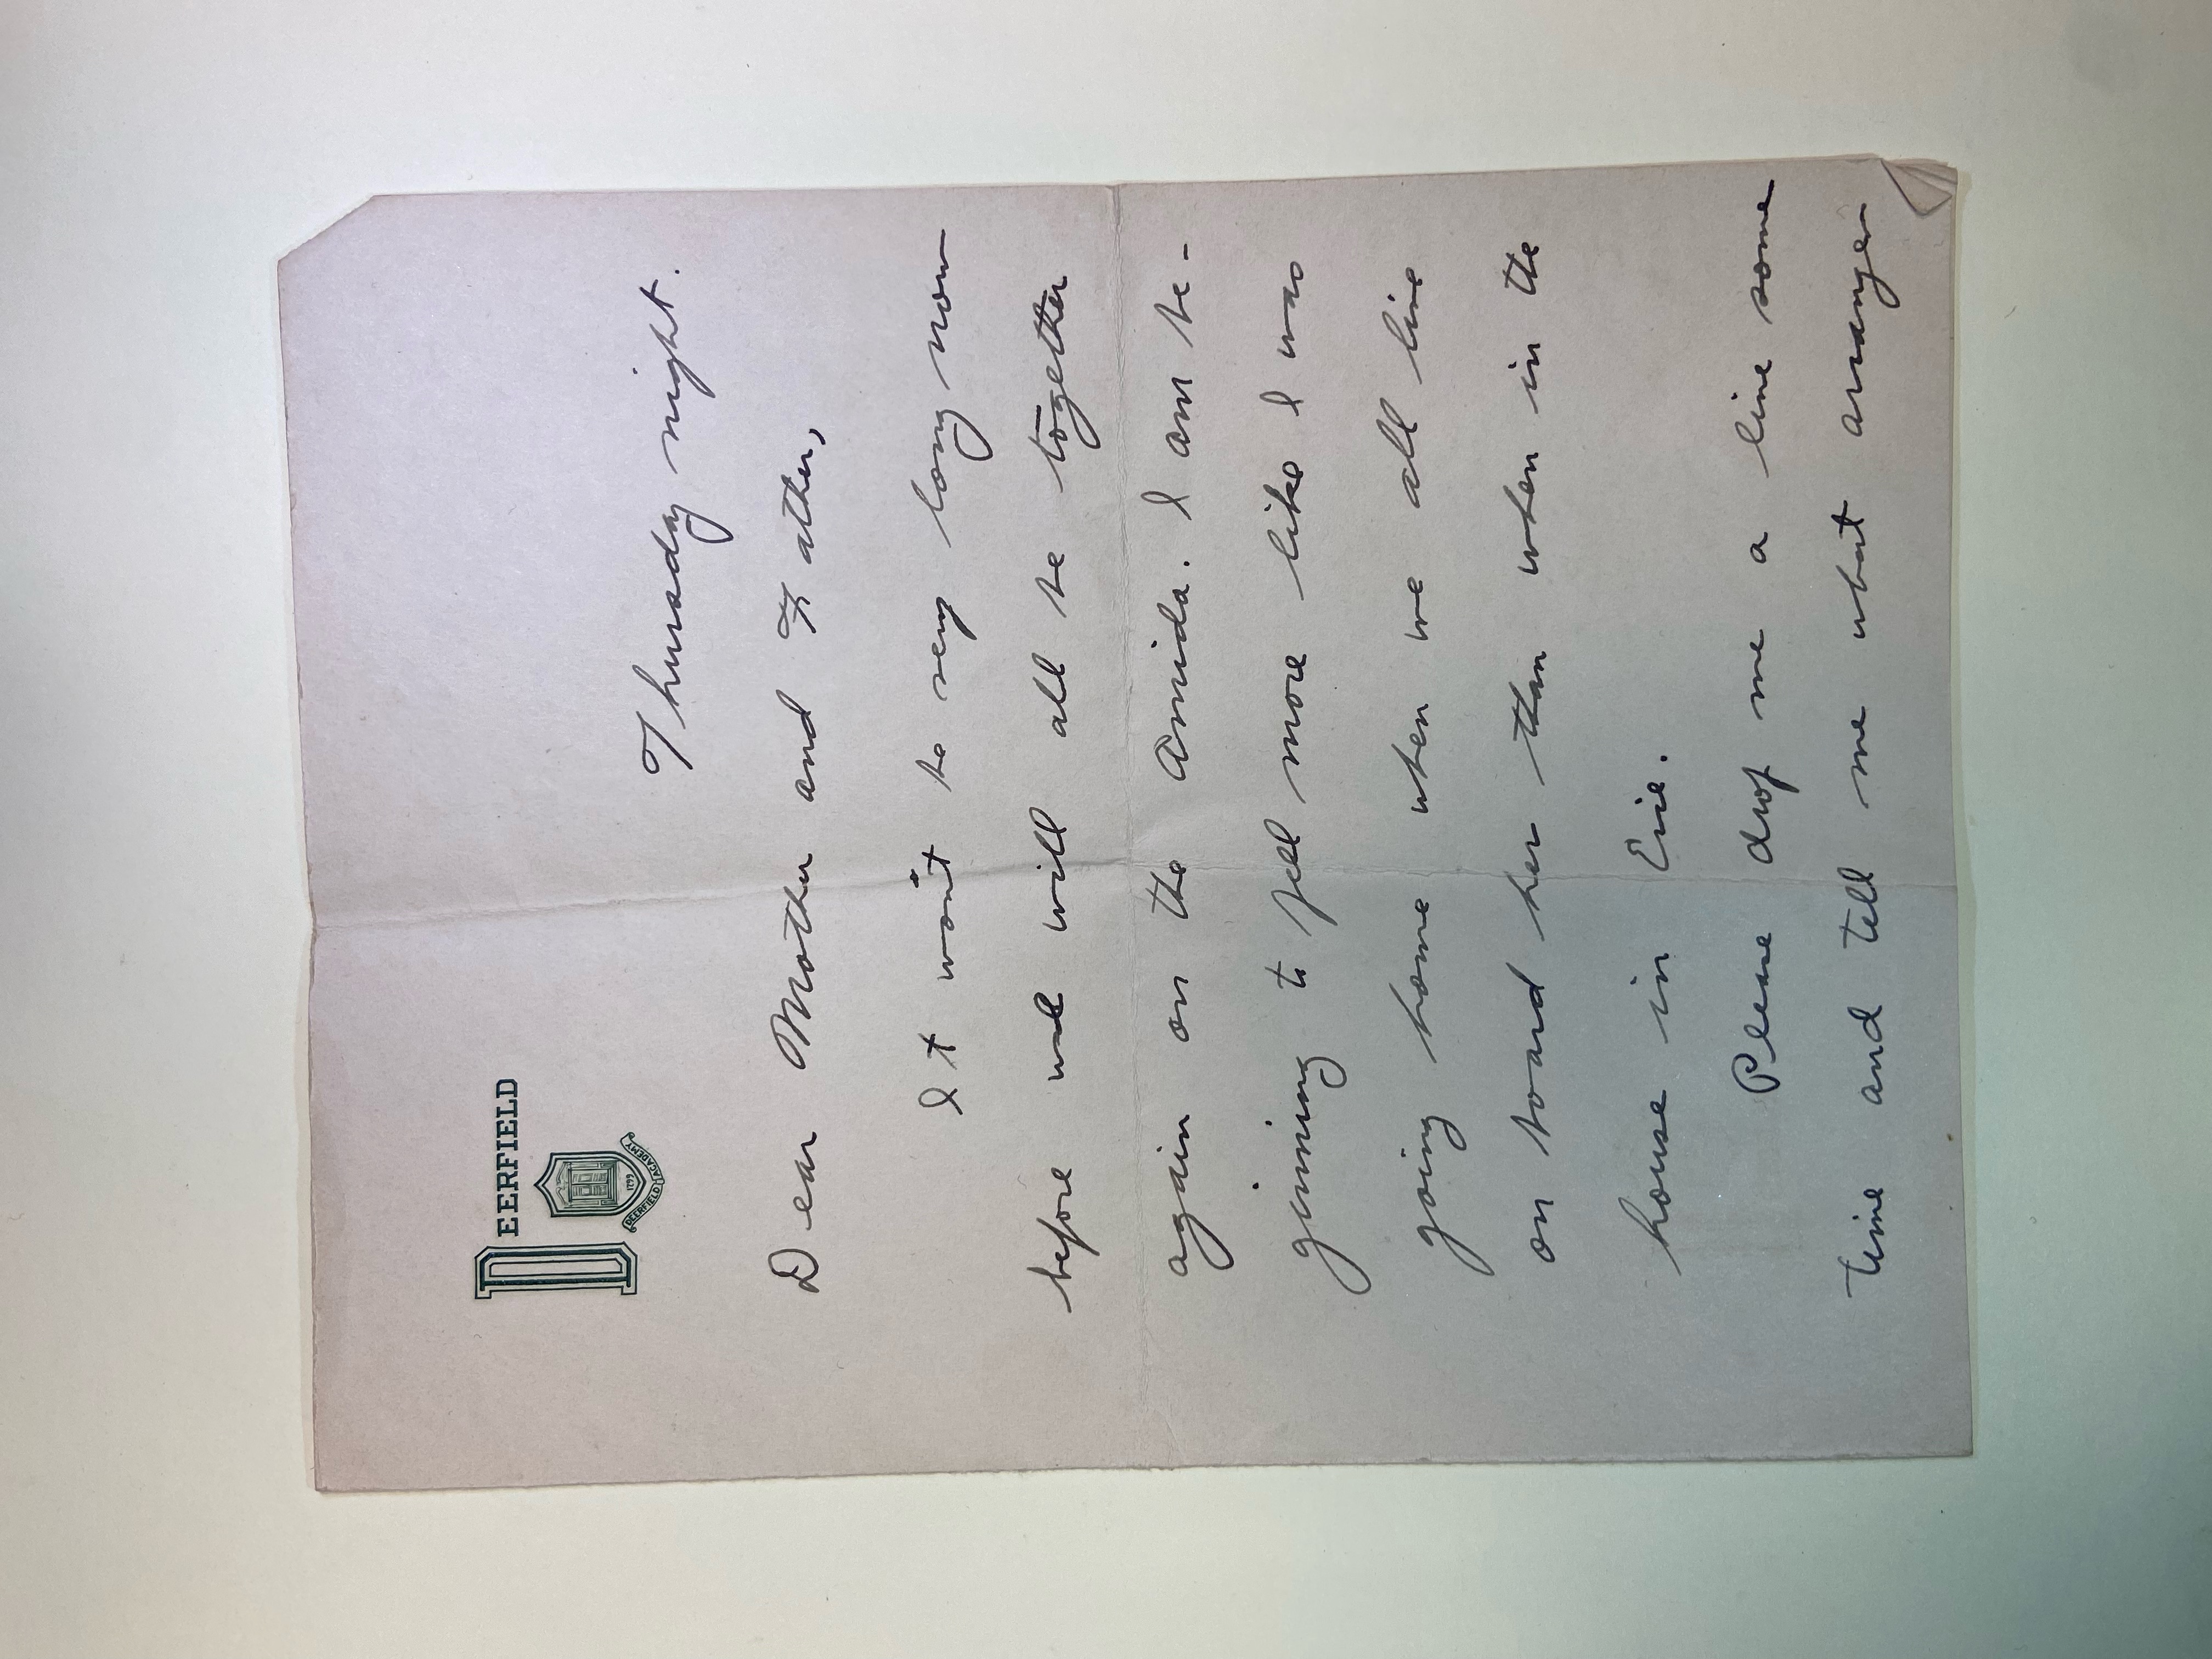 DEERFIELD
1799
DEERFIELD ACADEMY
Thursday night.
Dear Mother and Father,
It won't be very long now
before we will all be together
again on the Amida. I am be-
ginning to feel more like I was
going home when we all live
on board her than when in the
house in Erie.
Please drop me a line some
time and tell me what arrange-